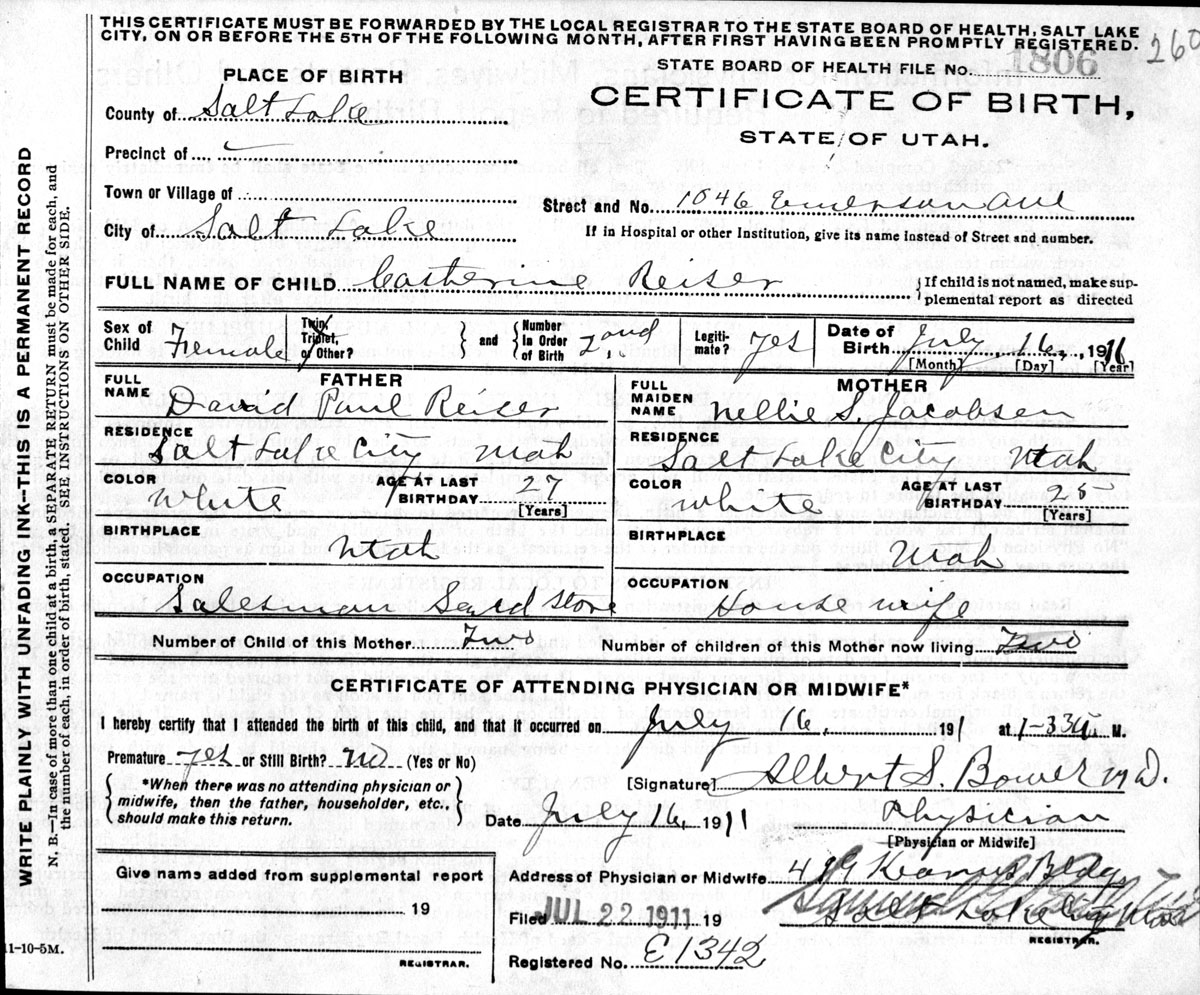 THIS CERTIFICATE MUST BE FORWARDED BY THE LOCAL REGISTRAR TO THE STATE BOARD OF HEALTH, SALT LAKE
CITY, ON OR BEFORE THE 5TH OF THE FOLLOWING MONTH, AFTER FIRST HAVING BEEN PROMPTLY REGISTERED.
260
STATE BOARD OF HEALTH FILE No. 1806
CERTIFICATE OF BIRTH,
STATE OF UTAH.
PLACE OF BIRTH
County of Salt Lake
Precinct of
Town or Village of
City of Salt Lake
Street and No. 1046 Emerson Ave
If in Hospital or other Institution, give its name instead of Street and number.
FULL NAME OF CHILD Catherine Reiser
If child is not named, make sup-
plemental report as directed
Sex of Child Female
Twin, Triplet, or Other?
and
Number In Order of Birth 2nd
Legiti-mate? yes
Date of Birth July 16, 1911
[Month] [Day] [Year]
FATHER
FULL NAME David Paul Reiser
RESIDENCE Salt Lake City Utah
COLOR White
AGE AT LAST BIRTHDAY 27 [Years]
BIRTHPLACE Utah
OCCUPATION Salesman Seed Store
MOTHER
FULL MAIDEN NAME Nellie S. Jacobsen
RESIDENCE Salt Lake City Utah
COLOR White
AGE AT LAST BIRTHDAY 25 [Years]
BIRTHPLACE Utah
OCCUPATION House wife
Number of Child of this Mother Two
Number of children of this Mother now living Two
CERTIFICATE OF ATTENDING PHYSICIAN OR MIDWIFE*
I hereby certify that I attended the birth of this child, and that it occurred on July 16, 191 at M.
Premature yes or Still Birth? no (Yes or No)
*When there was no attending physician or
midwife, then the father, householder, etc.,
should make this return.
[Signature] Albert S. Bower M.D.
Date July 16, 1911
Physician
[Physician or Midwife]
Give name added from supplemental report
19
REGISTRAR.
Address of Physician or Midwife Kearns Bldg
Salt Lake City
Filed JUL 22 1911 19
REGISTRAR.
Registered No. E1342
WRITE PLAINLY WITH UNFADING INK—THIS IS A PERMANENT RECORD
N. B.—In case of more than one child at a birth, a SEPARATE RETURN must be made for each, and
the number of each, in order of birth, stated. SEE INSTRUCTIONS ON OTHER SIDE.
11-10-5M.